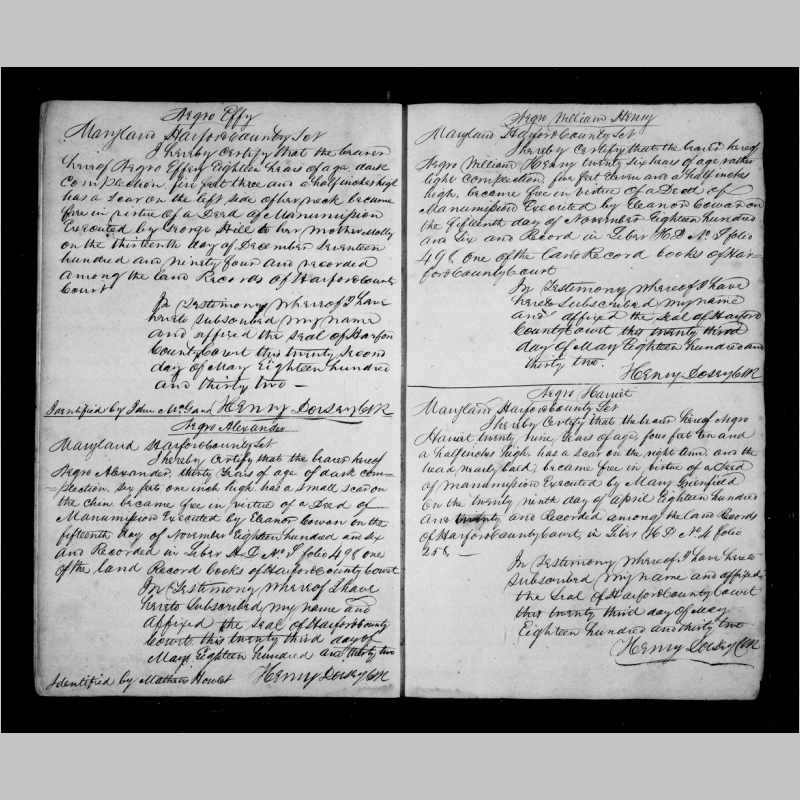 Negro Effy
Maryland Harford County Sct
I hereby Certify that the bearer
hereof Negro Effey Eighteen Years of age, dark
Complection, five feet three and a half inches high
has a scar on the left side of her neck became
free in virtue of a Deed of Manumission
Executed by George Hill to her Mother Molly
on the thirteenth day of December Seventeen
hundred and ninety four and recorded
among the land Records of Harford County
Court
In Testimony whereof I have
hereto subscribed my name
and affixed the seal of Harford
County Court this twenty second
day of May Eighteen hundred
and thirty two —
Identified by John Henry Dorsey Clk
Negro Alexander
Maryland Harford County Sct
I hereby Certify that the bearer hereof
Negro Alexander, thirty Years of age of dark com=
=plection, six feet one inch high has a small scar on
the chin became free in virtue of a Deed of
Manumission Executed by Eleanor Cowan on the
fifteenth day of November Eighteen hundred and six
and Recorded in Liber H D No. folio 498 one
of the land Record books of Harford County Court
In Testimony whereof I have
hereto Subscribed my name and
affixed the Seal of Harford County
Court this twenty third day of
May Eighteen hundred and thirty two
Identified by Mathew Henry Dorsey Clk
Negro William Henry
Maryland Harford County Sct
I hereby Certify that the bearer hereof
Negro William Henry twenty six years of age rather
light Complection, five feet Eleven and a half inches
high, became free in virtue of a Deed of
Manumission Executed by Eleanor Cowan on
the fifteenth day of November Eighteen hundred
and Six and Record in Liber H D No. folio
498 one of the land Record books of Har=
ford County Court
In Testimony whereof I have
hereto subscribed my name
and affixed the Seal of Harford
County Court this twenty third
day of May Eighteen hundred and
thirty two.
Henry Dorsey Clk
Negro Harriet
Maryland Harford County Sct
I hereby Certify that the bearer hereof Negro
Harriet twenty nine Years of age, four feet ten and
a half inches high, has a scar on the right and the
head nearly bald, became free in virtue of a Deed
of Manumission Executed by Mary Greenfield
on the twenty ninth day of April Eighteen hundred
and twenty and Recorded among the land Records
of Harford County Court, in Liber H D No. 4 folio
258 —
In Testimony whereof I have hereto
subscribed my name and affixed
the Seal of Harford County Court
this twenty third day of May
Eighteen hundred and thirty two
Henry Dorsey Clk